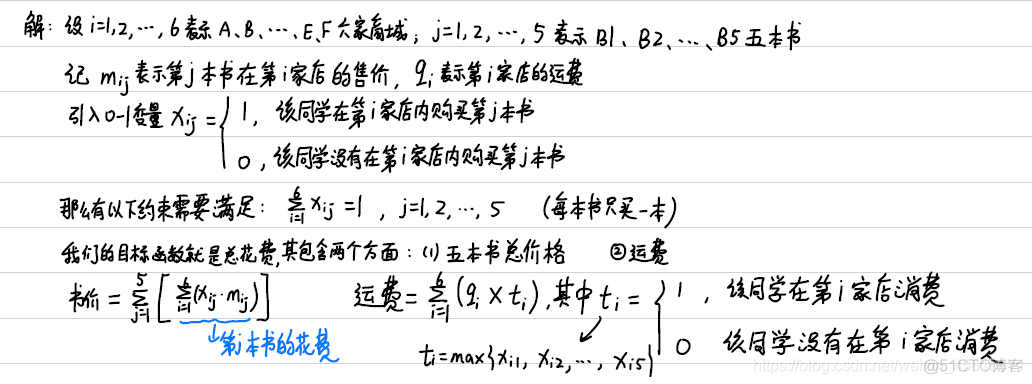 解: 设 i=1,2,…,6表示A、B、…、E、F六家商城; j=1,2,…,5 表示B1、B2、…、B5五本书
记 mij 表示第j本书在第i家店的售价, qi 表示第i家店的运费
引入0-1变量 xij = { 1, 该同学在第i家店内购买第j本书
0, 该同学没有在第i家店内购买第j本书
那么有以下约束需要满足: ∑_{i=1}^{6} xij = 1 , j=1,2,…,5 (每本书只买一本)
我们的目标函数就是总花费,其包含两个方面: (1) 五本书总价格 ②运费
书价 = ∑_{j=1}^{5} [ ∑_{i=1}^{6} (xij·mij) ] 运费 = ∑_{i=1}^{6} (qi × ti), 其中 ti = { 1, 该同学在第i家店消费
↓第j本书的花费 0 该同学没有在第i家店消费
ti = max{xi1, xi2, …, xi5}
@51CTO博客